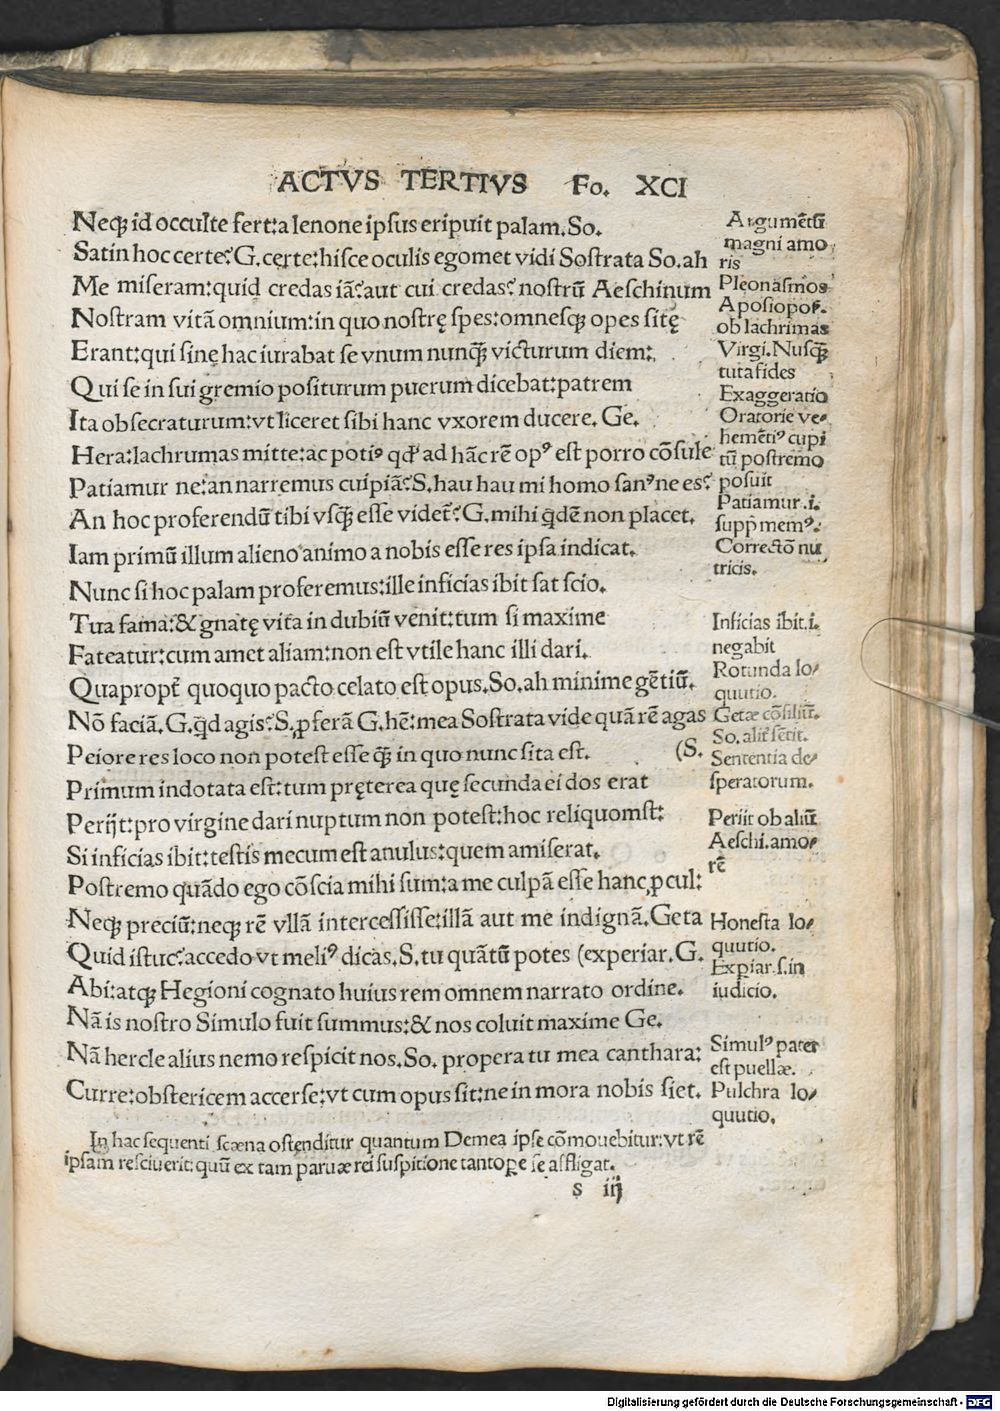 ACTVS TERTIVS Fo. XCI
Neqꝫ id occulte fert:a lenone ipsus eripuit palam.So.
Satin hoc certe?G.certe:hisce oculis egomet vidi Sostrata So.ah
Me miseram:quid credas iã?aut cui credas? nostrũ Aeschinum
Nostram vitã omnium:in quo nostrę spes:omnesqꝫ opes sitę
Erant:qui sine hac iurabat se vnum nunqꝫ̃ victurum diem:
Qui se in sui gremio positurum puerum dicebat:patrem
Ita obsecraturum:vt liceret sibi hanc vxorem ducere. Ge.
Hera:lachrumas mitte:ac potiꝰ qđ ad hãc rẽ opꝰ est porro cõsule
Patiamur ne:an narremus cuipiã?S.hau hau mi homo sanꝰne es?
An hoc proferendũ tibi vsqꝫ̃ esse videt᷑?G.mihi q̃dẽ non placet.
Iam primũ illum alieno animo a nobis esse res ipsa indicat.
Nunc si hoc palam proferemus:ille inficias ibit sat scio.
Tua fama:& gnatę vita in dubiũ venit:tum si maxime
Fateatur:cum amet aliam:non est vtile hanc illi dari.
Quapropt᷑ quoquo pacto celato est opus.So.ah minime gẽtiũ.
Nõ faciã.G.q̃d agis?S.ꝓferã G.hẽ:mea Sostrata vide quã rẽ agas
Peiore res loco non potest esse qꝫ̃ in quo nunc sita est. (S.
Primum indotata est:tum pręterea quę secunda ei dos erat
Perijt:pro virgine dari nuptum non potest:hoc reliquomst:
Si inficias ibit:testis mecum est anulus:quem amiserat.
Postremo quãdo ego cõscia mihi sum:a me culpã esse hanc ꝓcul:
Neqꝫ preciũ:neqꝫ rẽ vllã intercessisse:illã aut me indignã.Geta
Quid istuc?accedo vt meliꝰ dicas.S.tu quãtũ potes (experiar.G.
Abi:atqꝫ Hegioni cognato huius rem omnem narrato ordine.
Nã is nostro Simulo fuit summus:& nos coluit maxime Ge.
Nã hercle alius nemo respicit nos.So. propera tu mea canthara:
Curre:obstericem accerse:vt cum opus sit:ne in mora nobis siet.
In hac sequenti scæna ostenditur quantum Demea ipse cõmouebitur:vt rẽ
ipsam resciuerit:quũ ex tam paruæ rei suspitione tantoꝑe se affligat.
s iij
Argumẽtũ
magni amo
ris
Pleonasmos
Aposiopos.
ob lachrimas
Virgi.Nusqꝫ̃
tuta fides
Exaggeratio
Oratorie ve/
hemẽtiꝰ cupi
tũ postremo
posuit
Patiamur.i.
supp̃memꝰ.
Correctõ nu
tricis.
Inficias ibit.i.
negabit
Rotunda lo/
quutio.
Getæ cõsiliũ.
So.alit᷑ sẽtit.
Sententia de/
speratorum.
Periit ob aliũ
Aeschi.amo/
rẽ
Honesta lo/
quutio.
Exꝑiar.s.in
iudicio.
Simulꝰ pater
est puellæ.
Pulchra lo/
quutio.
Digitalisierung gefördert durch die Deutsche Forschungsgemeinschaft - DFG